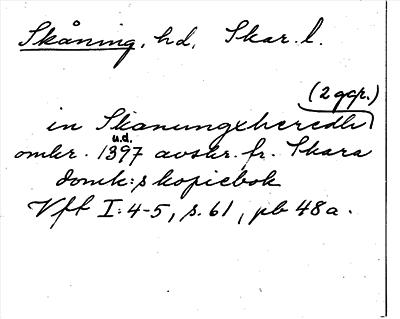 Skåning, hd, Skar. l.
(2 ggr.)
in Skanungxheredh
u.d.
omkr. 1397 avskr. fr. Skara
domk:s kopiebok
Vff I:4-5, s. 61, pb 48a.